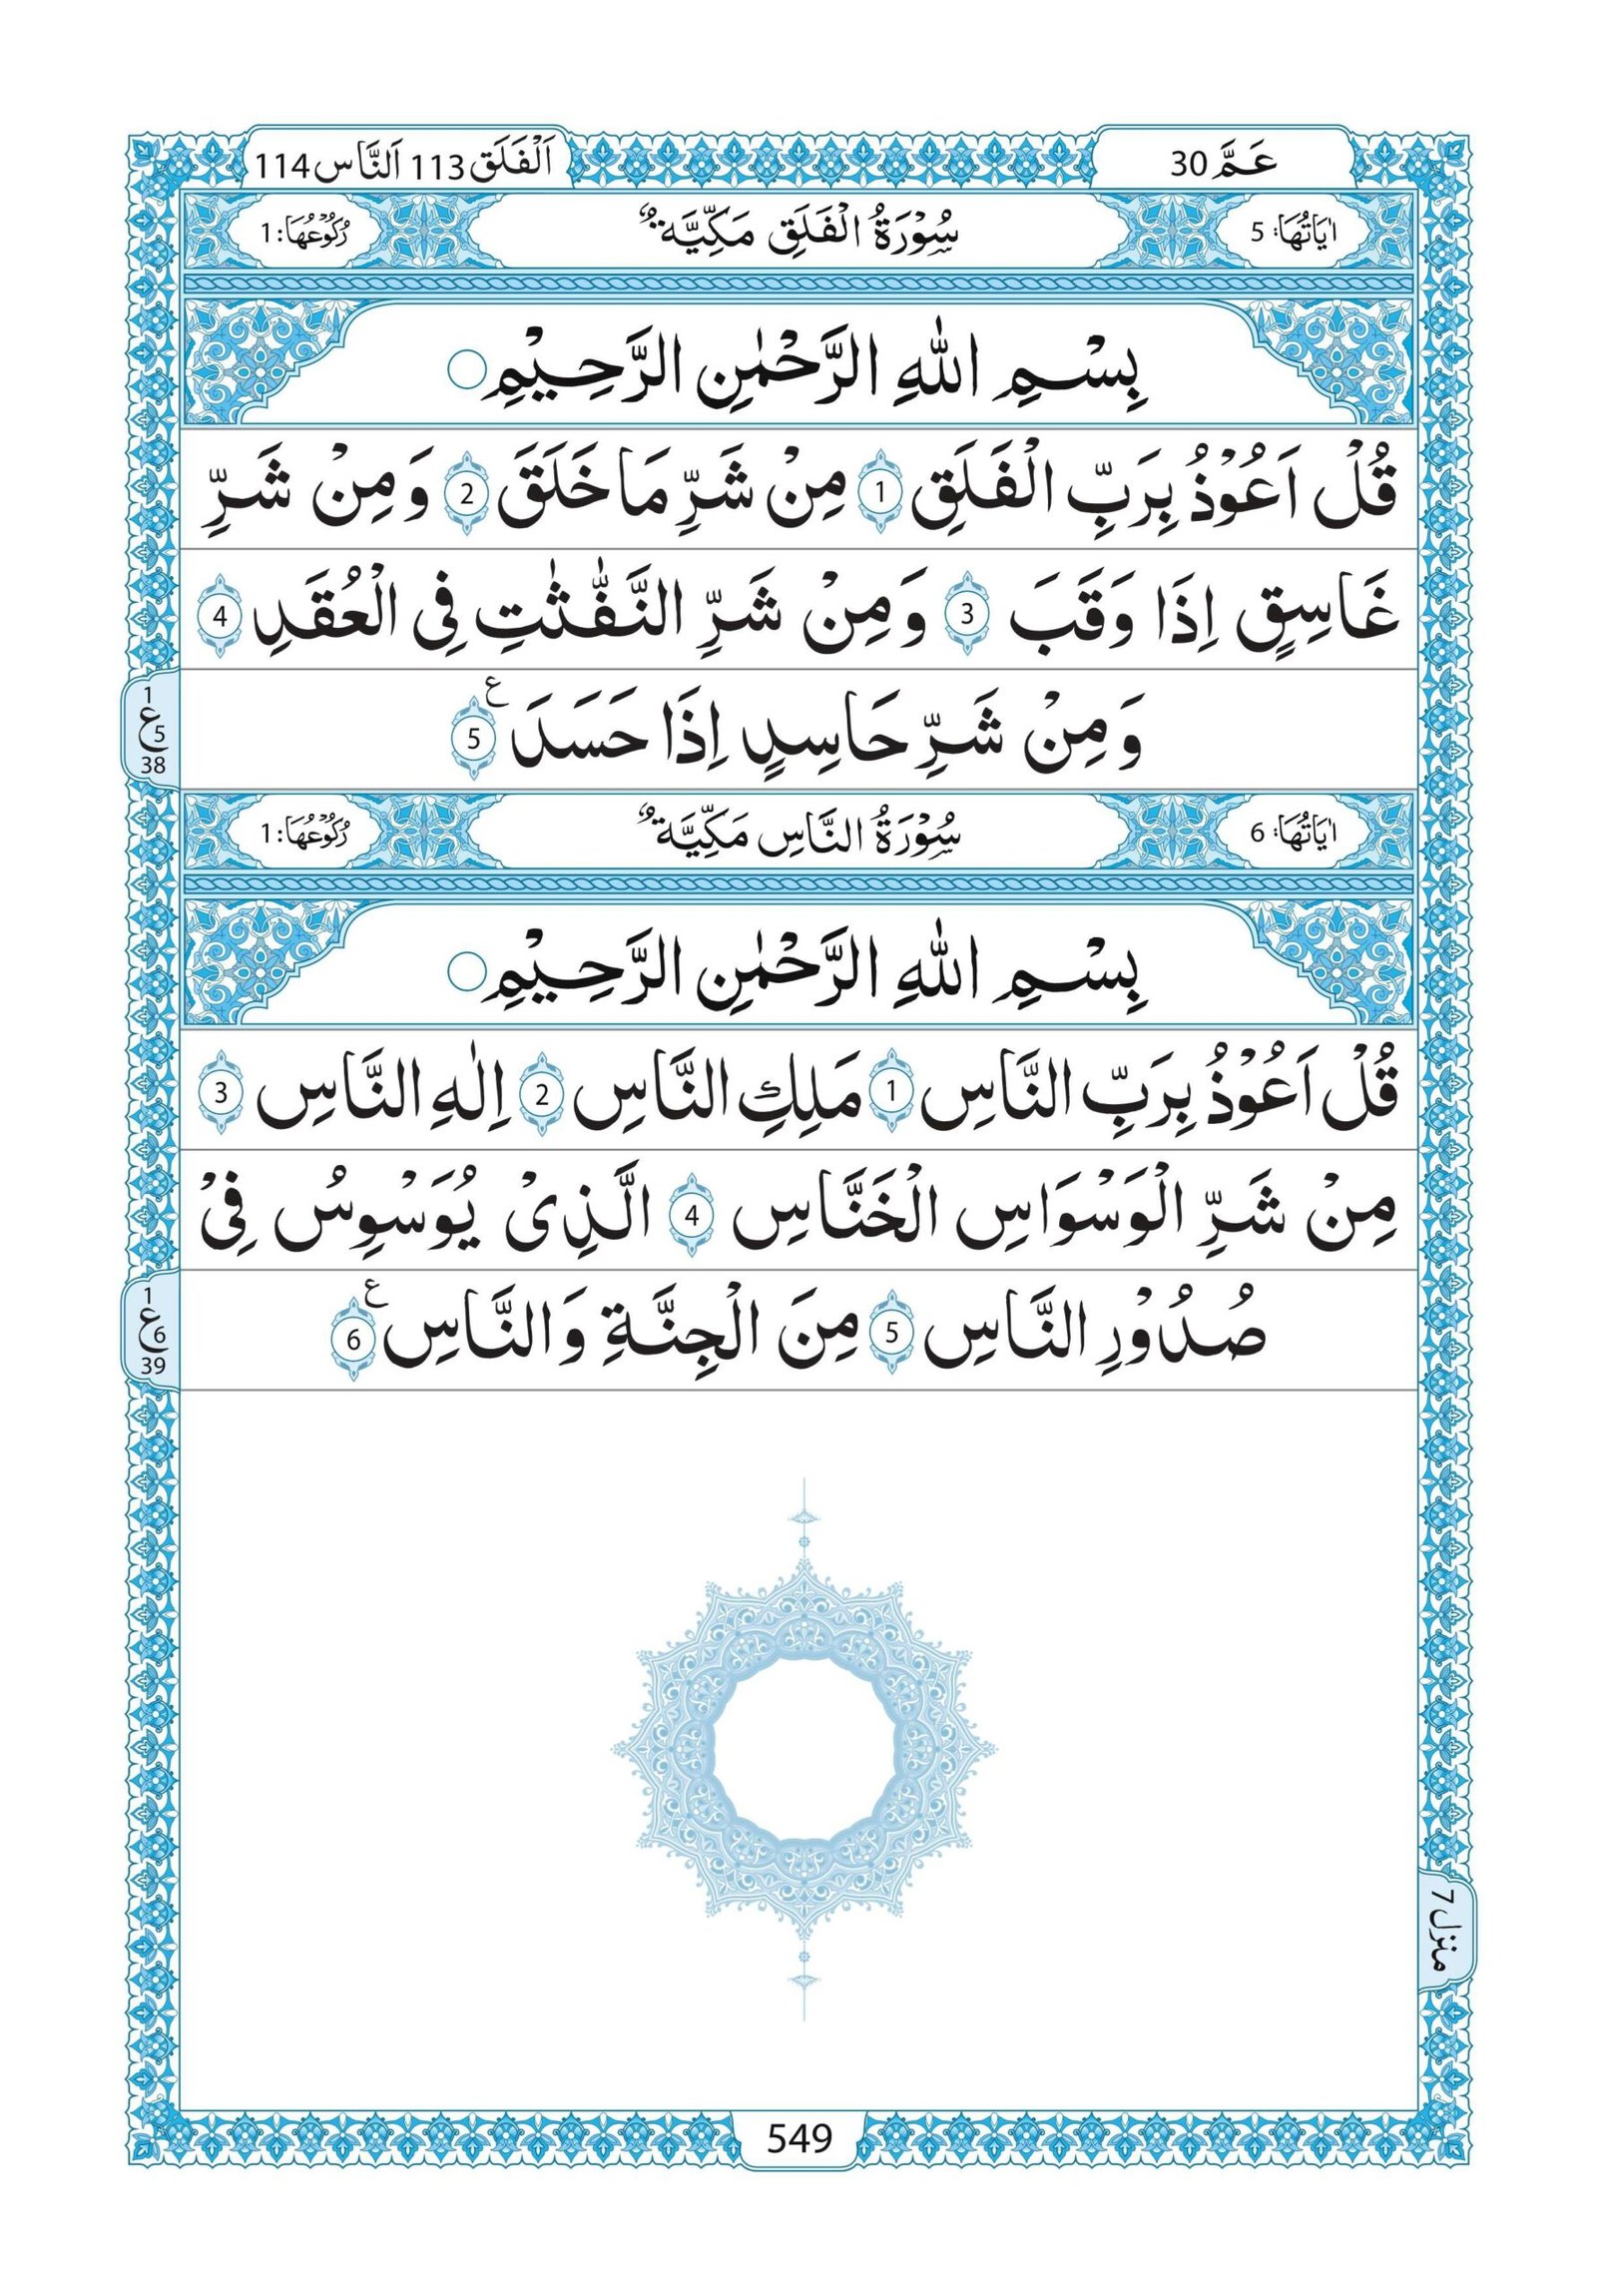 عَمَّ 30
اَلْفَلَق 113 اَلنَّاس 114
اٰيَاتُهَا: 5 سُوْرَةُ الْفَلَقِ مَكِّيَّةٌ رُكُوْعُهَا: 1
بِسْمِ اللّٰهِ الرَّحْمٰنِ الرَّحِيْمِ
قُلْ اَعُوْذُ بِرَبِّ الْفَلَقِ 1 مِنْ شَرِّ مَا خَلَقَ 2 وَ مِنْ شَرِّ
غَاسِقٍ اِذَا وَقَبَ 3 وَ مِنْ شَرِّ النَّفّٰثٰتِ فِى الْعُقَدِ 4
وَ مِنْ شَرِّ حَاسِدٍ اِذَا حَسَدَ 5 ع
1
ع 5
38
اٰيَاتُهَا: 6 سُوْرَةُ النَّاسِ مَكِّيَّةٌ رُكُوْعُهَا: 1
بِسْمِ اللّٰهِ الرَّحْمٰنِ الرَّحِيْمِ
قُلْ اَعُوْذُ بِرَبِّ النَّاسِ 1 مَلِكِ النَّاسِ 2 اِلٰهِ النَّاسِ 3
مِنْ شَرِّ الْوَسْوَاسِ الْخَنَّاسِ 4 الَّذِىْ يُوَسْوِسُ فِىْ
صُدُوْرِ النَّاسِ 5 مِنَ الْجِنَّةِ وَ النَّاسِ 6 ع
1
ع 6
39
منزل 7
549